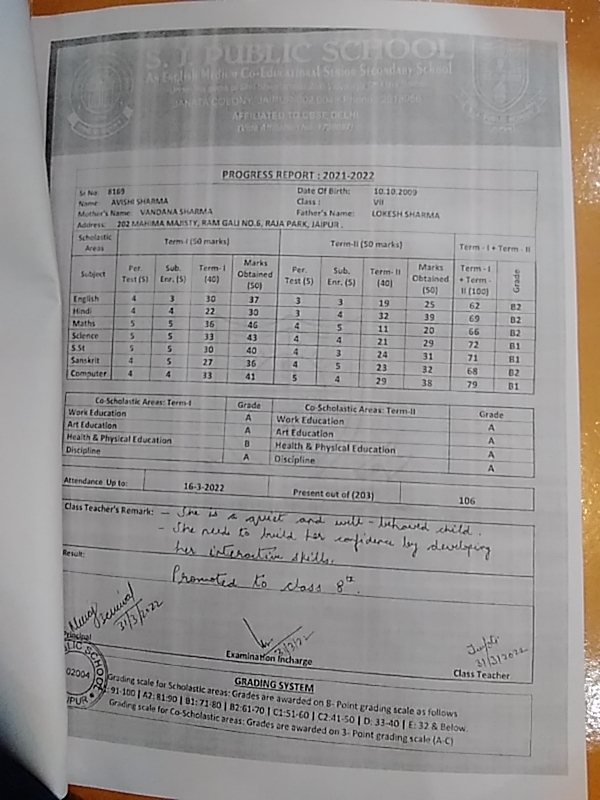 S. J. PUBLIC SCHOOL
An English Medium Co-Educational Senior Secondary School
JANATA COLONY, JAIPUR
AFFILIATED TO CBSE, DELHI
PROGRESS REPORT : 2021-2022
Sr No: 8169 Date Of Birth: 10.10.2009
Name: AVISHI SHARMA Class : VII
Mother's Name: VANDANA SHARMA Father's Name: LOKESH SHARMA
Address: 202 MAHIMA MAJISTY, RAM GALI NO.6, RAJA PARK, JAIPUR .
Scholastic Areas Term-I (50 marks) Term-II (50 marks) Term - I + Term - II
Subject Per. Test (5) Sub. Enr. (5) Term- I (40) Marks Obtained (50) Per. Test (5) Sub. Enr. (5) Term- II (40) Marks Obtained (50) Term - I + Term - II (100) Grade
English 4 3 30 37 3 3 19 25 62 B2
Hindi 4 4 22 30 3 4 32 39 69 B2
Maths 5 5 36 46 4 5 11 20 66 B2
Science 5 5 33 43 4 4 21 29 72 B1
S.St 5 5 30 40 4 3 24 31 71 B1
Sanskrit 4 5 27 36 4 5 23 32 68 B2
Computer 4 4 33 41 5 4 29 38 79 B1
Co-Scholastic Areas: Term-I Grade Co-Scholastic Areas: Term-II Grade
Work Education A Work Education A
Art Education A Art Education A
Health & Physical Education B Health & Physical Education A
Discipline A Discipline A
Attendance Up to: 16-3-2022 Present out of (203) 106
Class Teacher's Remark: - She is a quiet and well-behaved child.
- She need to build her confidence by developing
her interactive skills.
Result: Promoted to class 8th.
31/3/2022
31/3/22
31/3/2022
Principal Examination Incharge Class Teacher
PUBLIC SCHOOL
02004
GRADING SYSTEM
Grading scale for Scholastic areas: Grades are awarded on 8- Point grading scale as follows
91-100 | A2: 81-90 | B1: 71-80 | B2:61-70 | C1:51-60 | C2:41-50 | D: 33-40 | E: 32 & Below
Grading scale for Co-Scholastic areas: Grades are awarded on 3- Point grading scale (A-C)